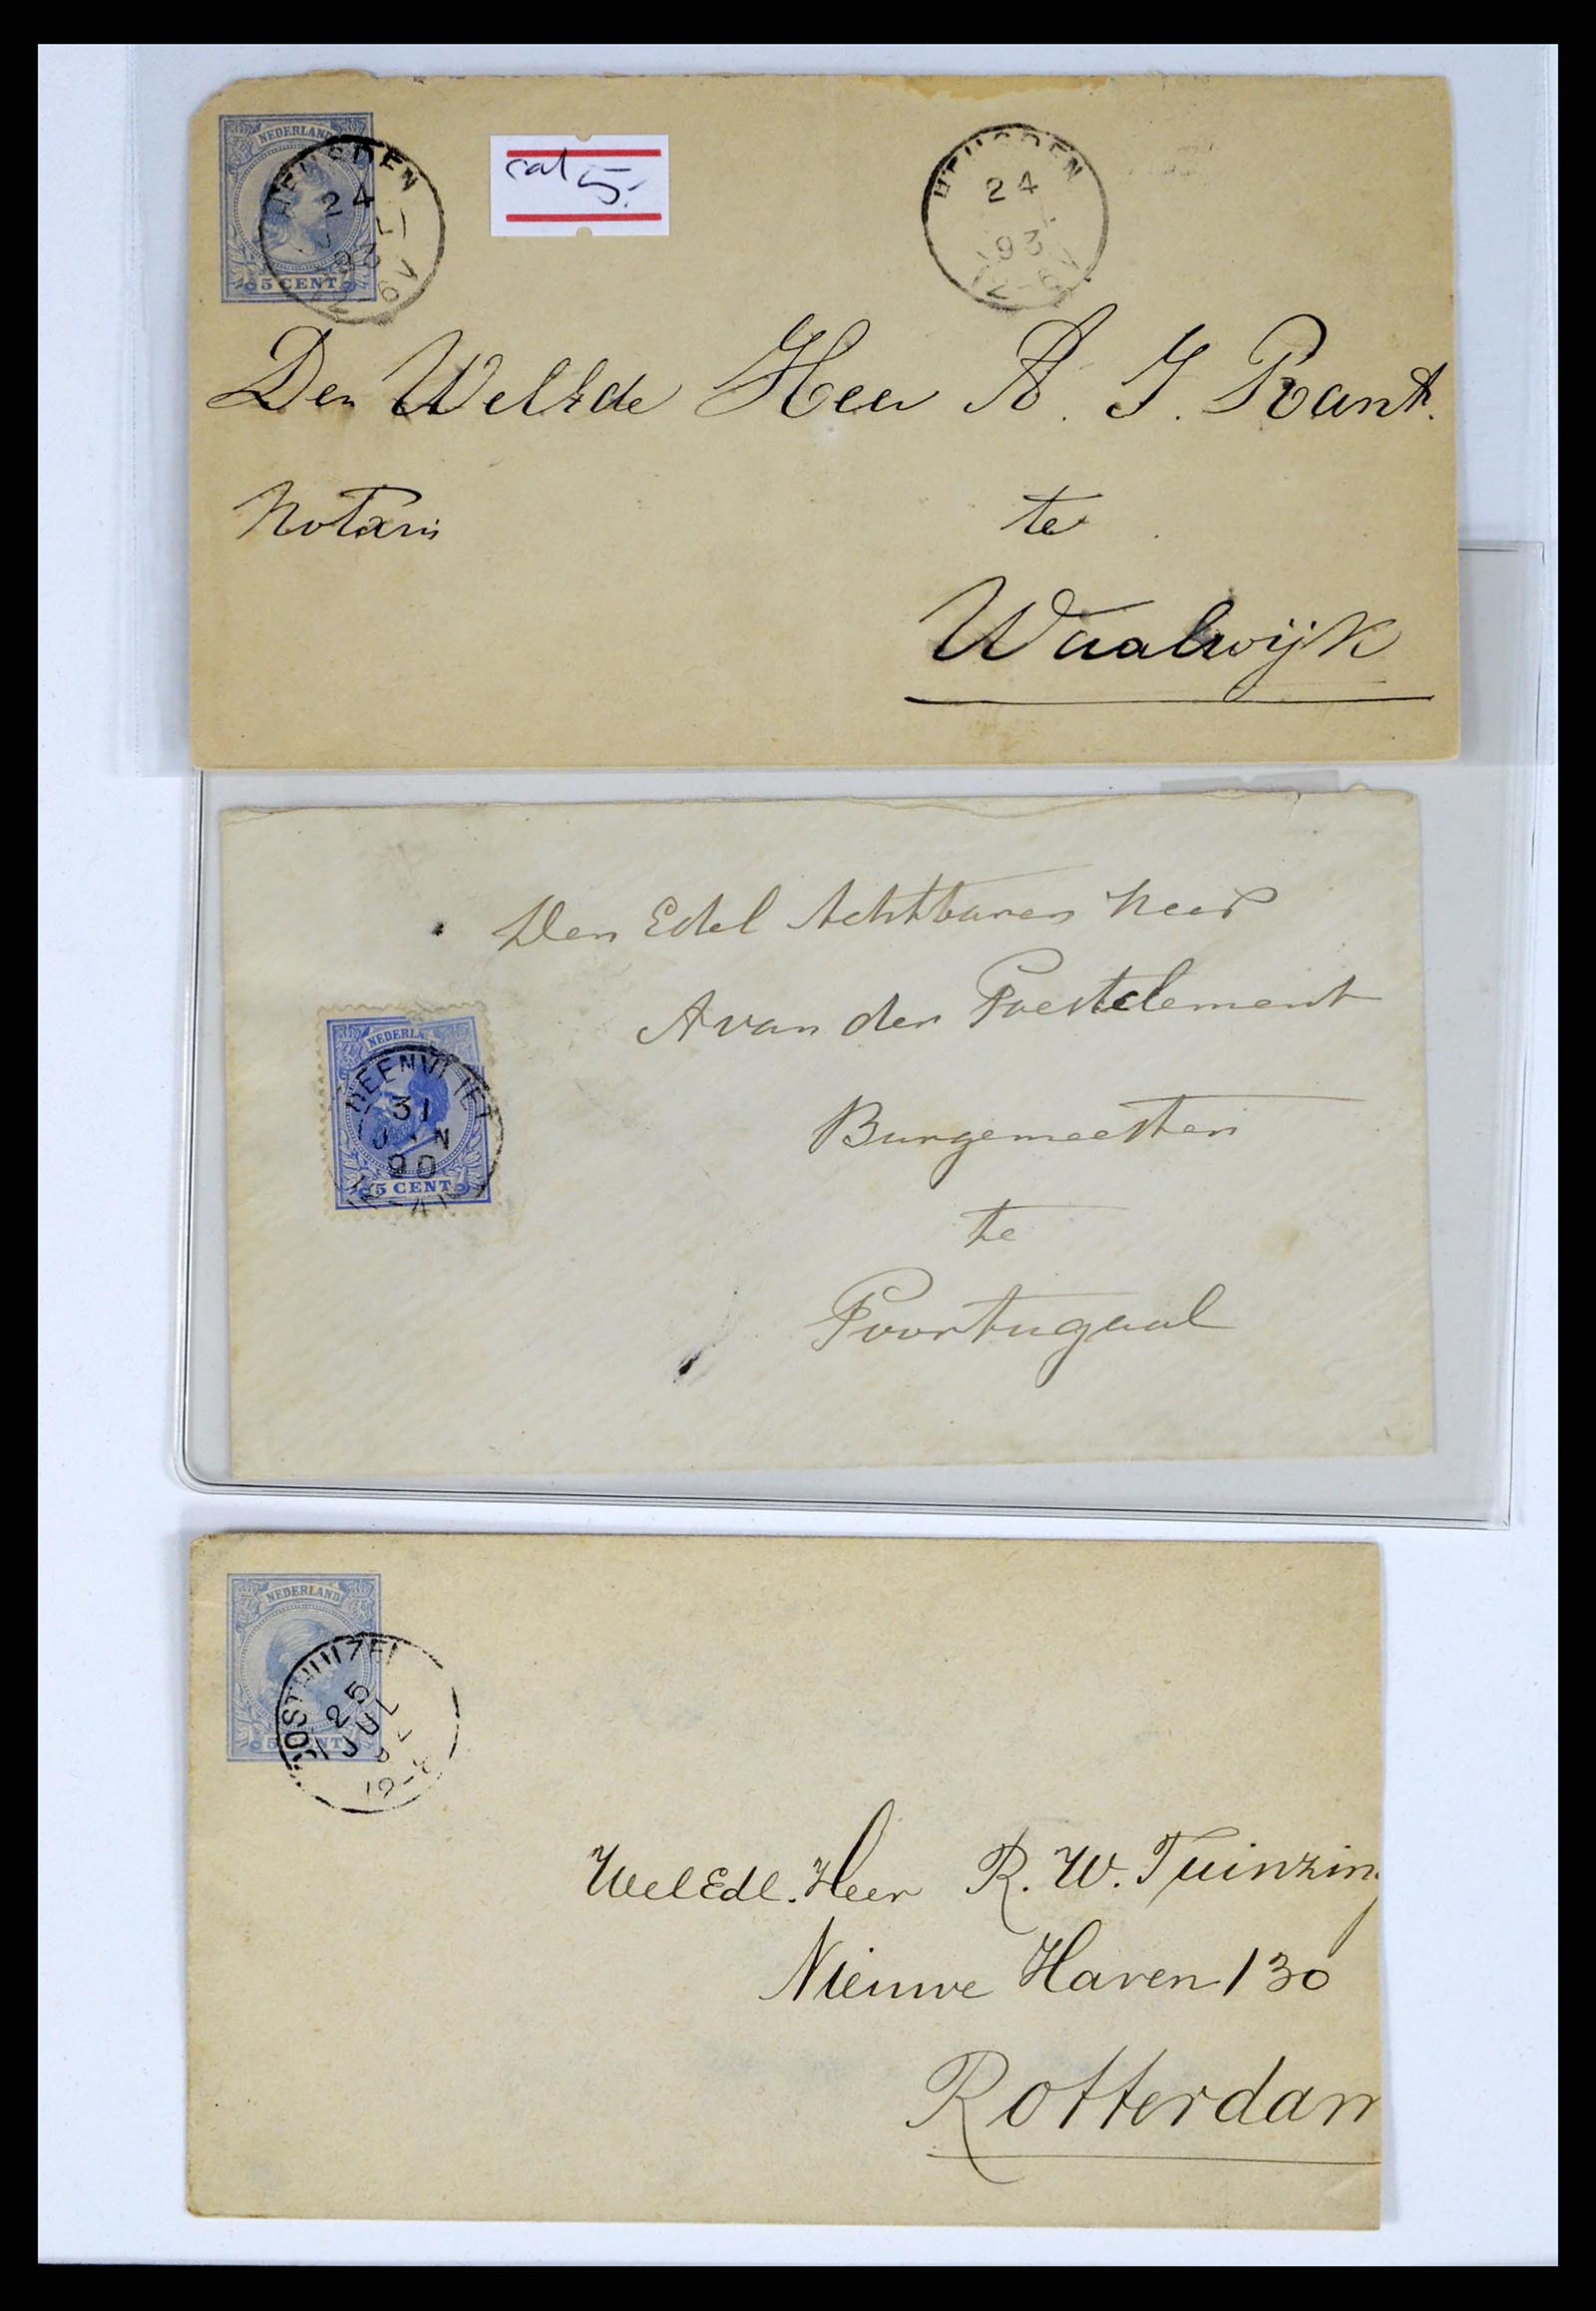 NEDERLAND
5 CENT
HEUSDEN
24
93
12-6V
cal 5.-
HEUSDEN
24
93
12-6V
Den WelEde Heer A. J. Rant.
Notaris te
Waalwijk
Den Edel Achtbaren Heer
A van der Poest Clement
Burgemeester
te
Poortugaal
NEDERLA
HEENVLIET
31
JAN
90
5 CENT
NEDERLAND
5 CENT
OOSTHUIZE
25
JUL
WelEdl. Heer R. W. Tuinzing
Nieuwe Haven 130
Rotterdam